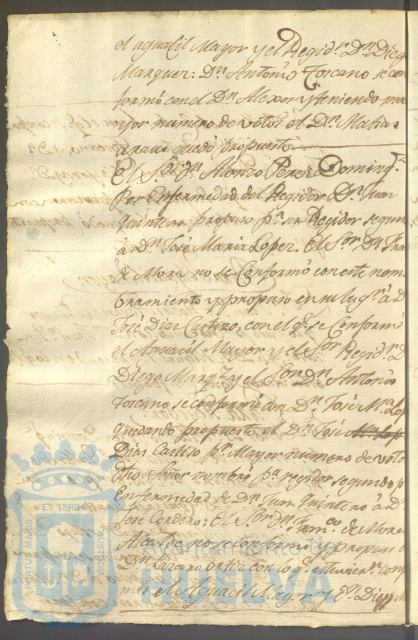 el aguacil Mayor y el Regidr. Dn. Dieg
Marquez: Dn. Antonio Toscano se con
formó con el Dn. y teniendo ma
yor número de votos el Dn. Matia
quedó propuesto.
El Sor. Dn. Alonzo Perez Doming
Por Enfermedad del Regidor Dn. Juan
Quintero propuso pa. Regidor segun
á Dn. José Maria Lopez. El Sor. Dn. Fran
de Mora no se Conformó con este nom
bramiento y propuso en su lugr. á D
José Dias Castizo, con el qe. se Conformó
el Aguacil Mayor y el Sor. Regidr. D
Diego Marqz. y el Sor. Dn. Antonio
Toscano se conformó con Dn. José Ma. Lop
quedando propuesto el Dn. José
Dias Castizo pr. Mayor número de voto
Dho. Señor nombró pa. regidor segundo p
Enfermedad de Dn. Juan Quintero á D
José Cordero: El Sor. Dn. Franco. de Mora
no se conformó y propuso
Dn. Lázaro Ortiz con lo qe. estuvieron conf
mes el Aguacil Mayor y Dn. Dieg
Ayuntamiento de
HUELVA